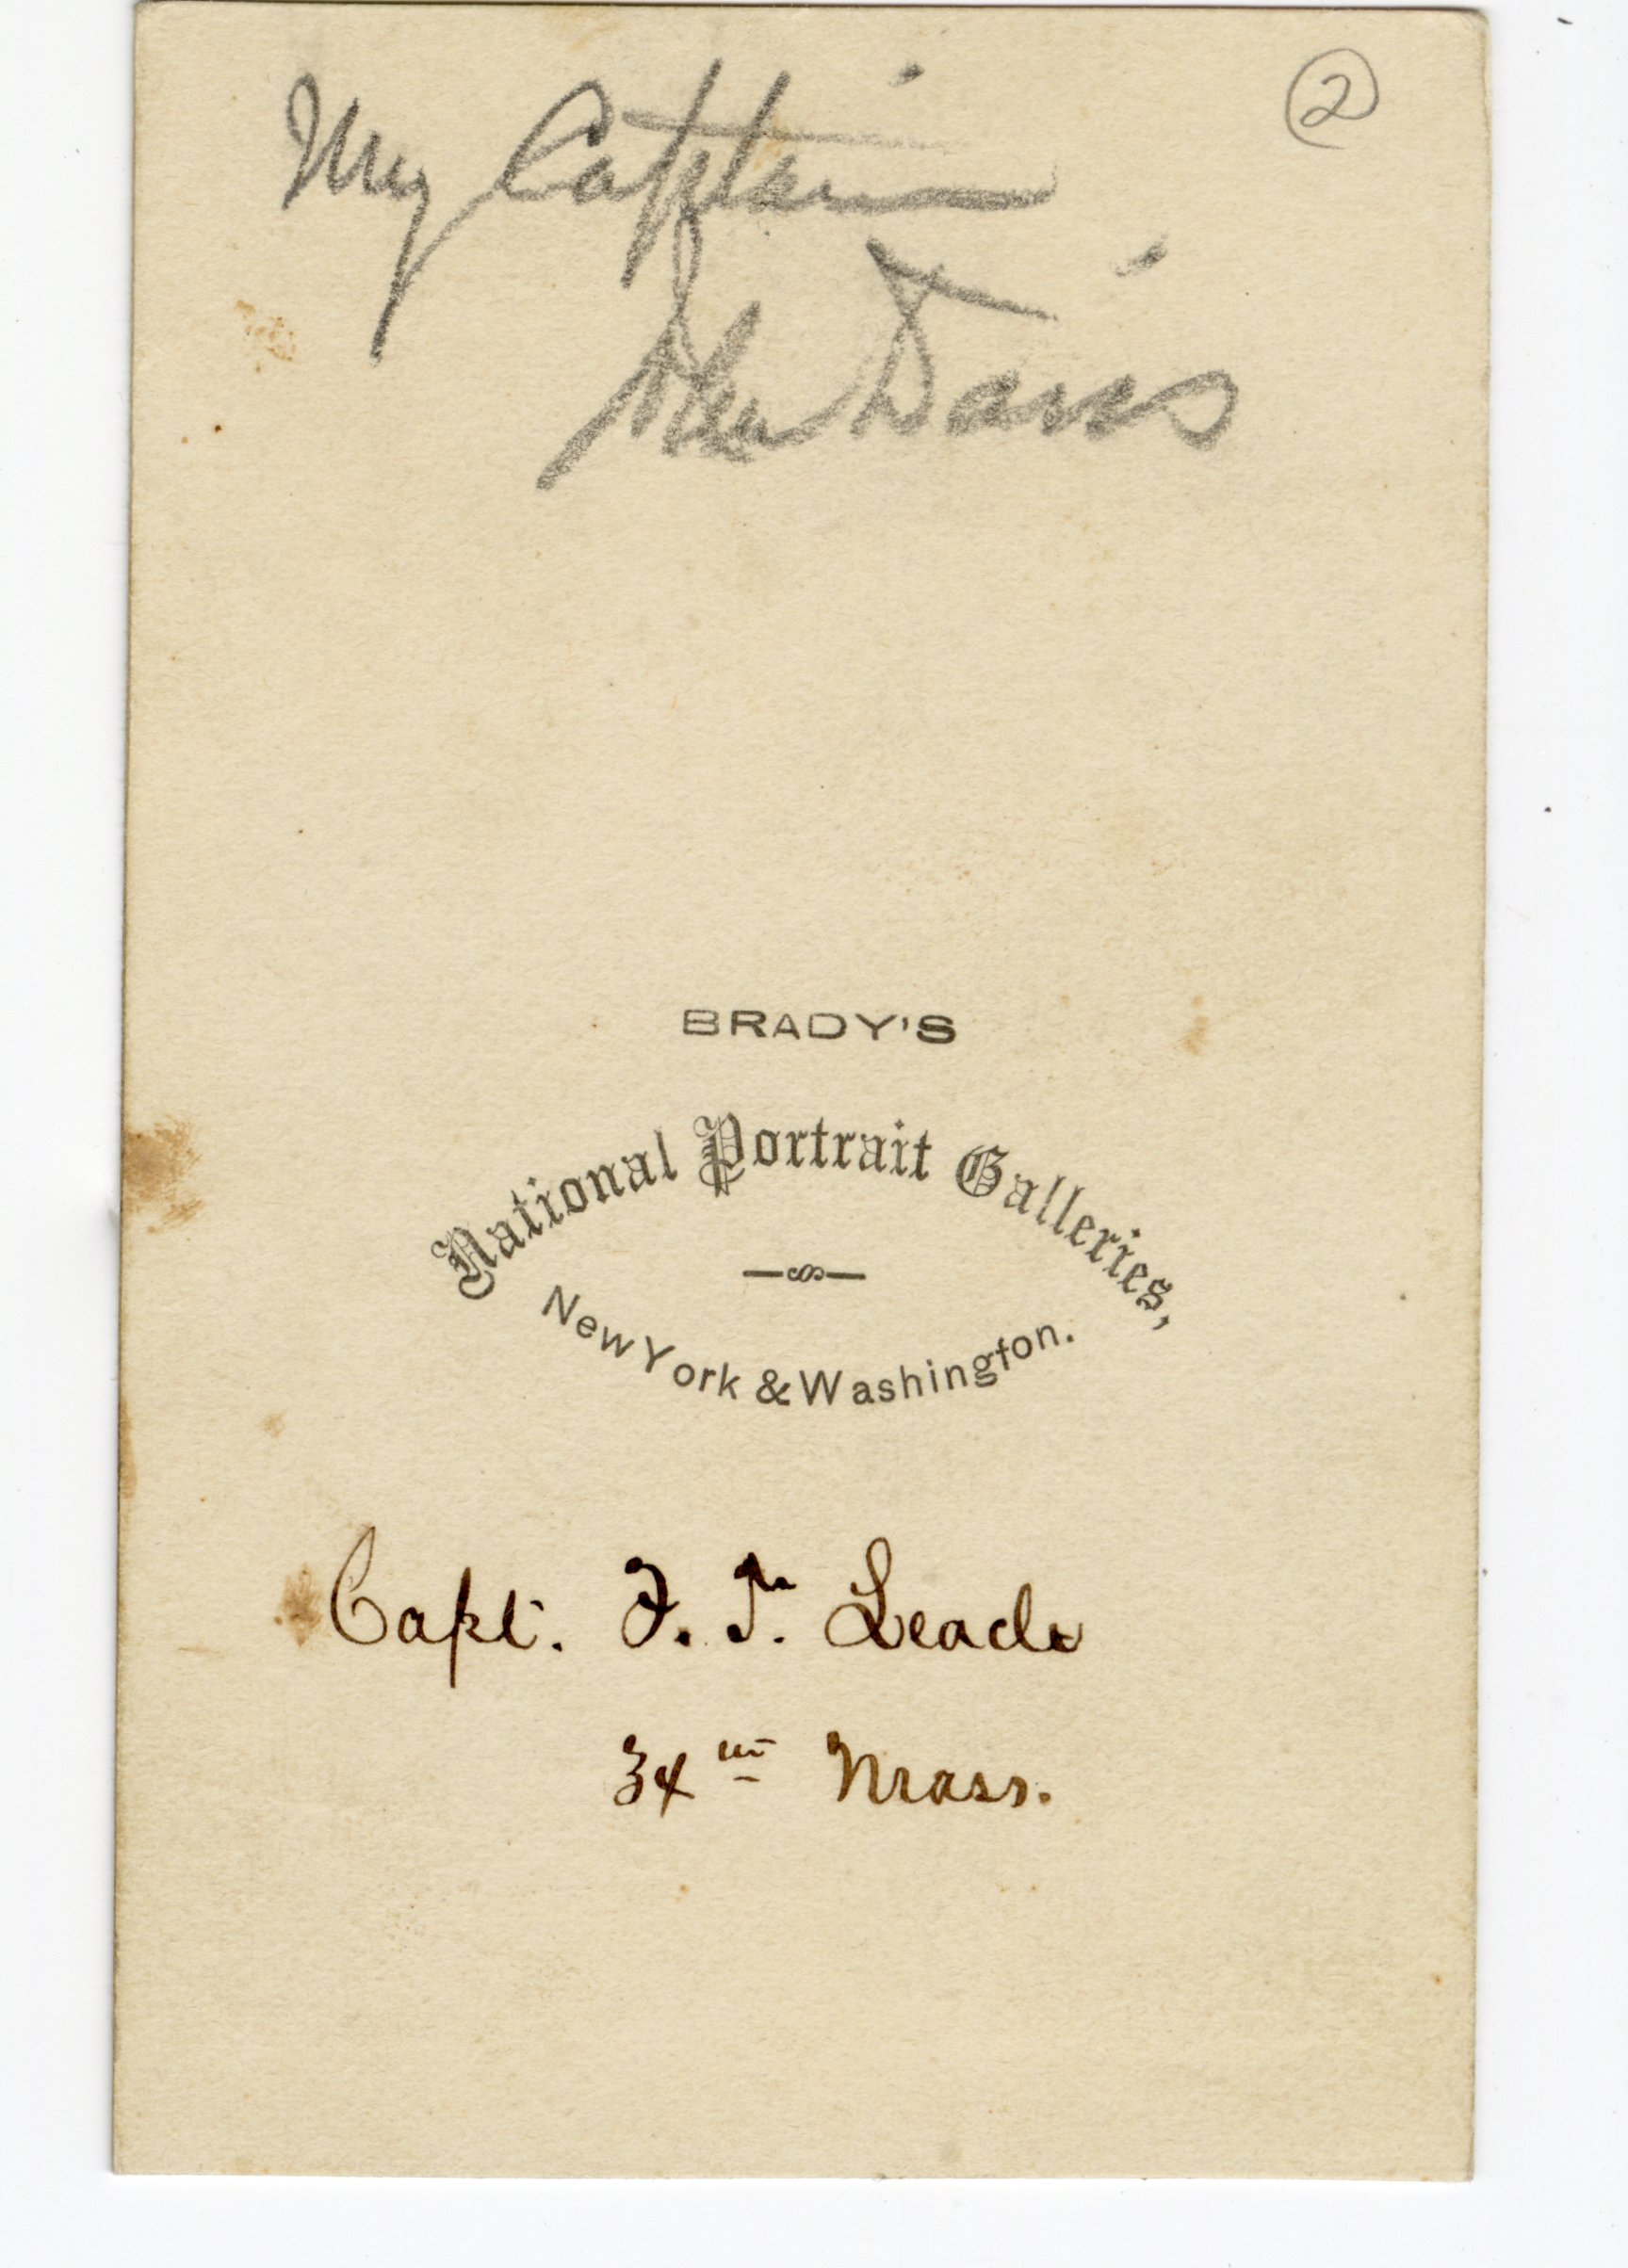 ②
My Captain
John Davis
BRADY'S
National Portrait Galleries,
New York & Washington.
Capt. F. T. Leach
34th Mass.